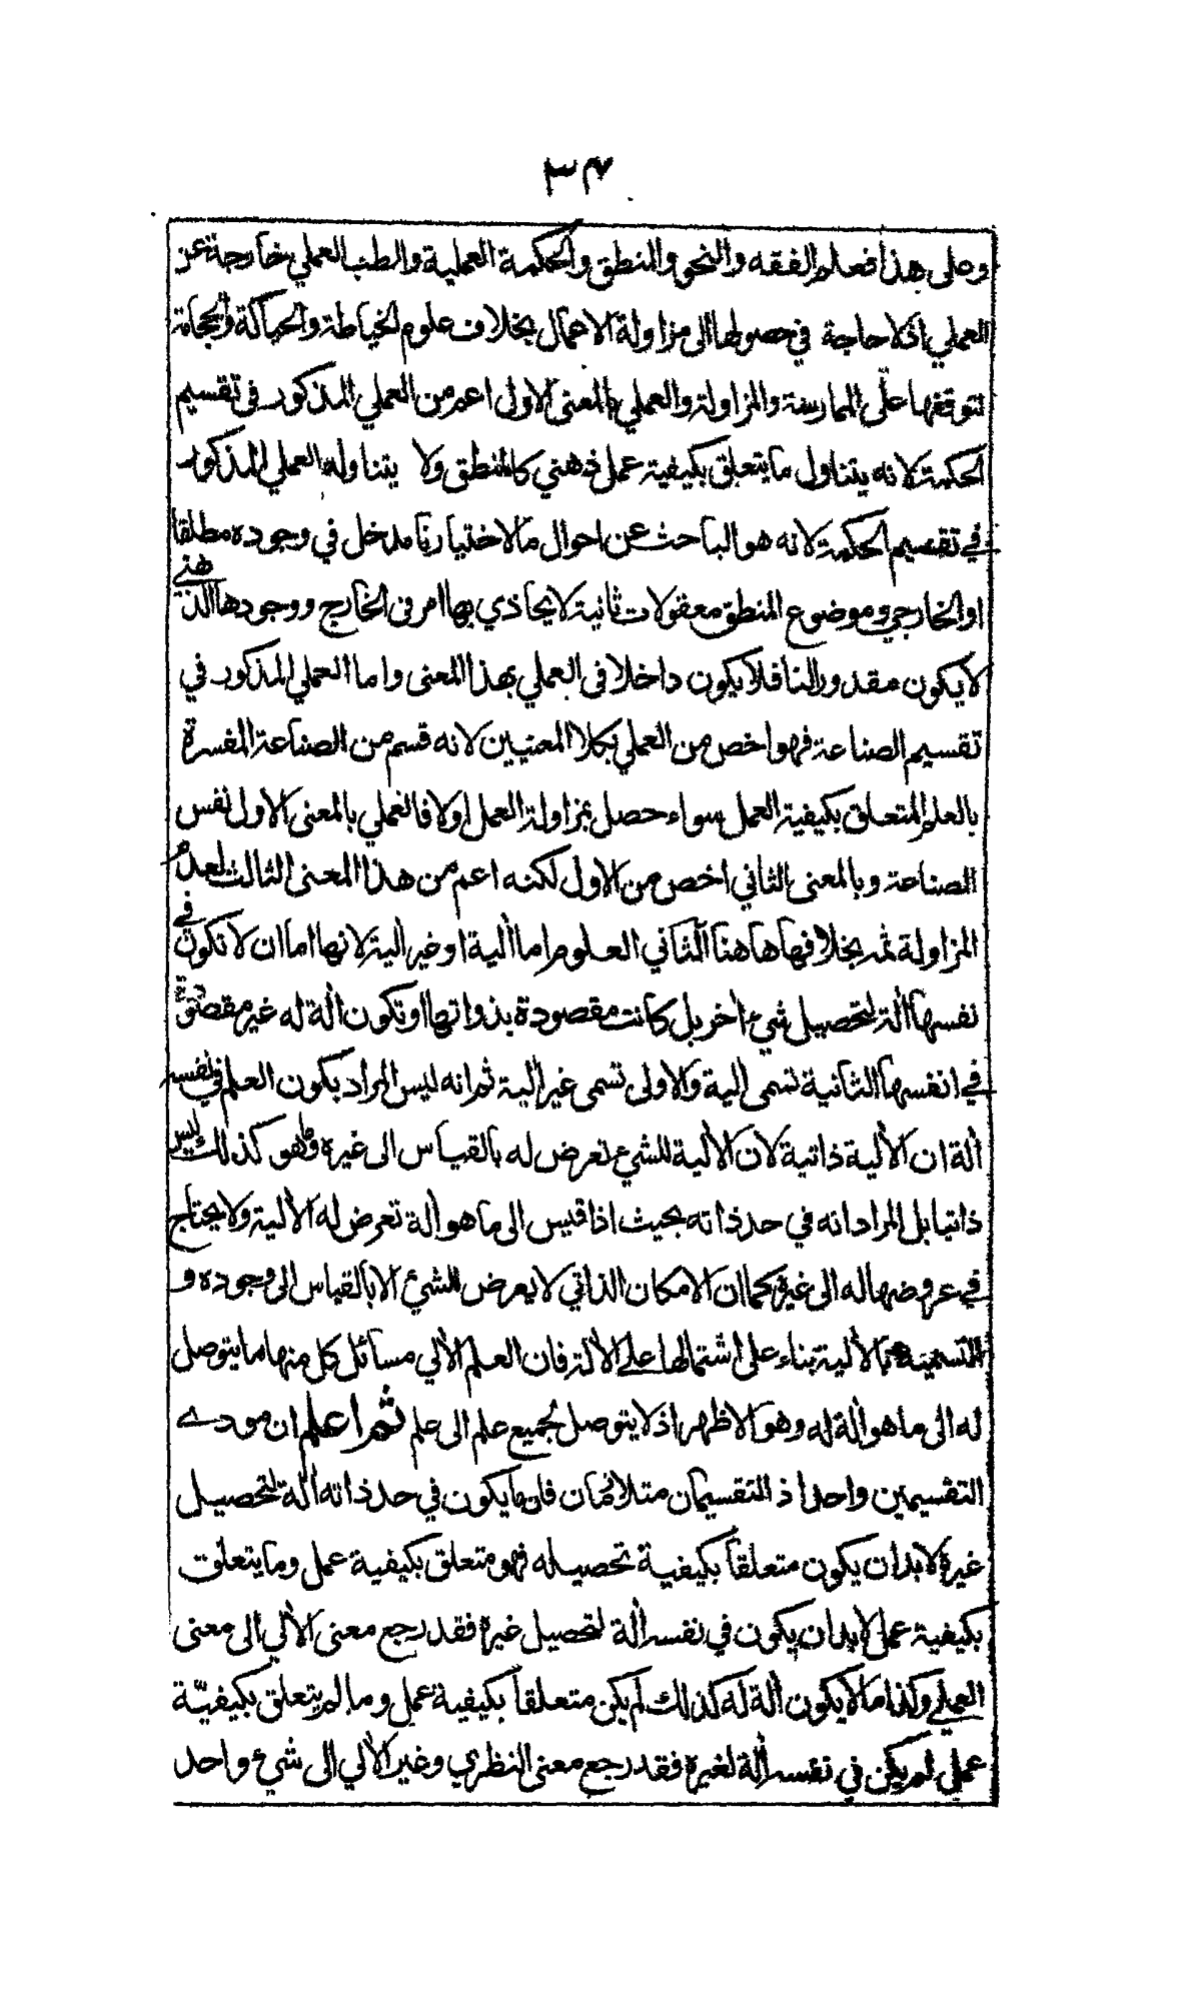 ٣٤
وعلى هذا فعلم الفقه والنحو والمنطق والحكمة العملية والطب العملي خارجة عن
العملي اذ لا حاجة في حصولها الى مزاولة الاعمال بخلاف علوم الخياطة والحياكة والحجامة
لتوقفها على الممارسة والمزاولة والعملي بالمعنى الاول اعم من العملي المذكور في تقسيم
الحكمة لانه يتناول ما يتعلق بكيفية عمل ذهني كالمنطق ولا يتناوله العملي المذكور
في تقسيم الحكمة لانه هو الباحث عن احوال ما لاختيارنا مدخل في وجوده مطلقا
او الخارجي وموضوع المنطق معقولات ثانية لا يحاذي بها امر في الخارج ووجودها الذهني
لا يكون مقدورا لنا فلا يكون داخلا في العملي بهذا المعنى واما العملي المذكور في
تقسيم الصناعة فهو اخص من العملي بكلا المعنيين لانه قسم من الصناعة المفسرة
بالعلم المتعلق بكيفية العمل سواء حصل بمزاولة العمل اولا فالعملي بالمعنى الاول نفس
الصناعة وبالمعنى الثاني اخص من الاول لكنه اعم من هذا المعنى الثالث لعدم
المزاولة ثمه بخلافها هاهنا الثاني العلوم اما ألية او غير ألية لانها اما ان لا تكون في
نفسها ألة لتحصيل شيء أخر بل كانت مقصودة بذواتها او تكون ألة له غير مقصودة
في انفسها الثانية تسمى ألية والاولى تسمى غير ألية ثم انه ليس المراد بكون العلم في نفسه
ألة ان الألية ذاتية لان الألية للشيء تعرض له بالقياس الى غيره وما هو كذلك ليس
ذاتيا بل المراد انه في حد ذاته بحيث اذا قيس الى ما هو ألة تعرض له الألية ولا يحتاج
في عروضها له الى غيره كما ان الامكان الذاتي لا يعرض للشيء الا بالقياس الى وجوده و
التسمية بالألية بناء على اشتمالها على الألة فان العلم الألي مسائل كل منها ما يتوصل
له الى ما هو ألة له وهو الاظهر اذ لا يتوصل بجميع علم الى علم ثم اعلم ان مودى
التقسيمين واحد اذ التقسيمان متلازمان فان ما يكون في حد ذاته ألة لتحصيل
غيره لا بد ان يكون متعلقا بكيفية تحصيله فهو متعلق بكيفية عمل وما يتعلق
بكيفية عمل لا بد ان يكون في نفسه ألة لتحصيل غيره فقد رجع معنى الألي الى معنى
العملي وكذا ما لا يكون ألة له كذلك لم يكن متعلقا بكيفية عمل وما لم يتعلق بكيفية
عمل لم يكن في نفسه ألة لغيره فقد رجع معنى النظري وغير الألي الى شيء واحد